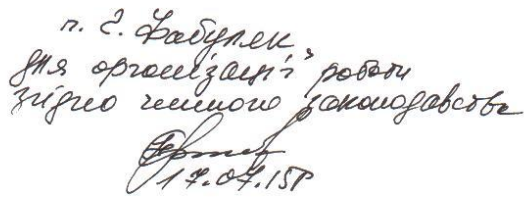 п. Є. Бабуляк
для організації роботи
згідно чинного законодавства
17.07.15р